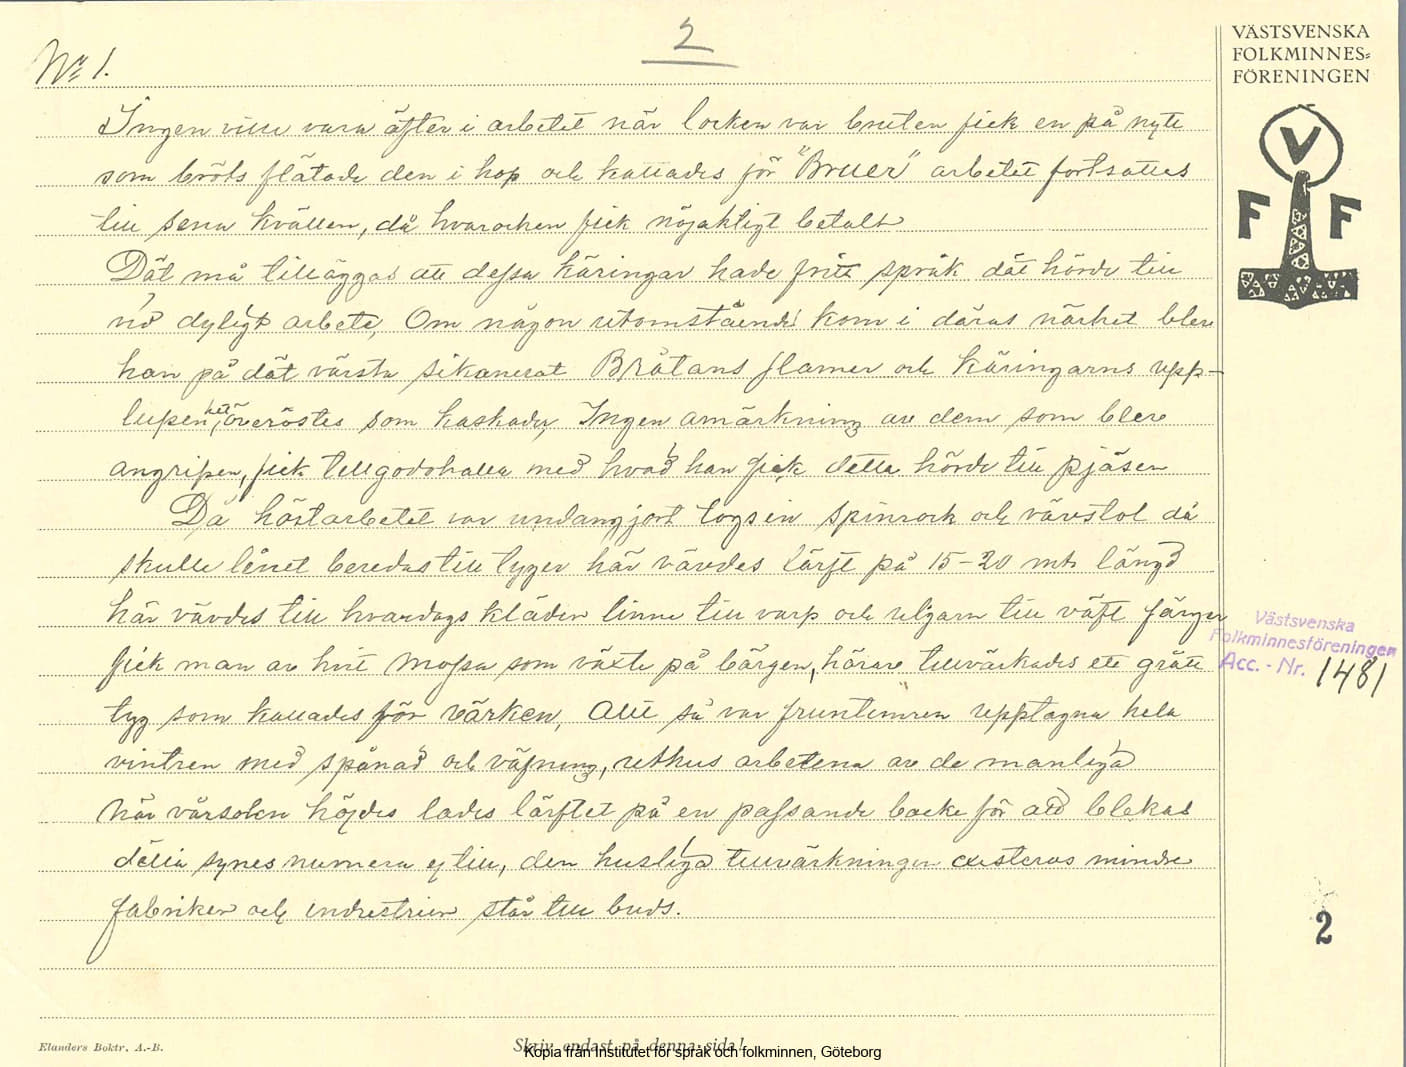 2
VÄSTSVENSKA
FOLKMINNES=
FÖRENINGEN
V
F F
No 1.
Ingen ville vara äfter i arbetet när locken var bruten fick en på nytt
som bröts flätade den i hop och kallades för "Bruer" arbetet fortsattes
till sena kvällen, då hvarochen fick nöjaktigt betalt
Dät må tilläggas att dessa käringar hade fritt språk dät hörde till
vid dyligt arbete, Om någon utomstående kom i däras närhet blev
han på dät värsta sikanerat Bråtans flamer och käringarns upp-
lupenhet, överöstes som kaskader, Ingen anmärkning av dem som blev
angripen, fick tillgodohålla med hvad han fick detta hörde till pjäsen
Då höstarbetet var undangjort togs in spinrock och vävstol då
skulle linet beredas till tyger här vävdes lärft på 15-20 mtr längd
här vävdes till hvardags kläder linne till varp och ulgarn till väft färger
fick man av hvit Mossa som växte på bärgen, härav tillvärkades ett grått
tyg som kallades för värken, Allt så var fruntimren upptagna hela
vintren med spånad och väfning, uthus arbetena av de manliga
När vårsolen höjdes lades lärftet på en passande backe för att blekas
detta synes numera ej till, den husliga tillvärkningen existeras mindre
fabriken och industrien står till buds.
Västsvenska
Folkminnesföreningen
Acc. - Nr. 1481
2
Elanders Boktr. A.-B.
Skriv endast på denna sida!
Kopia från Institutet för språk och folkminnen, Göteborg